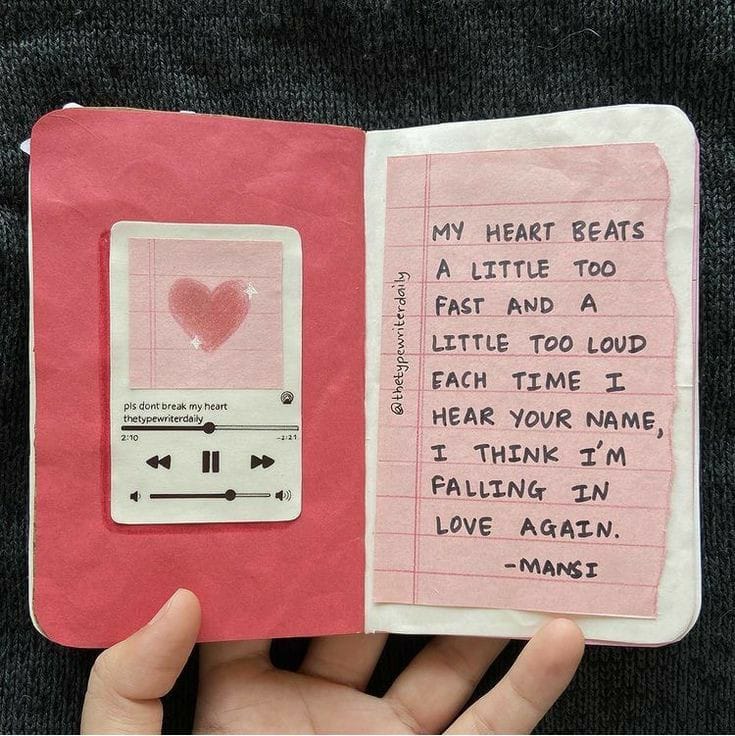 pls dont break my heart
thetypewriterdaily
2:10
-2:21
@thetypewriterdaily
MY HEART BEATS
A LITTLE TOO
FAST AND A
LITTLE TOO LOUD
EACH TIME I
HEAR YOUR NAME,
I THINK I'M
FALLING IN
LOVE AGAIN.
-MANSI